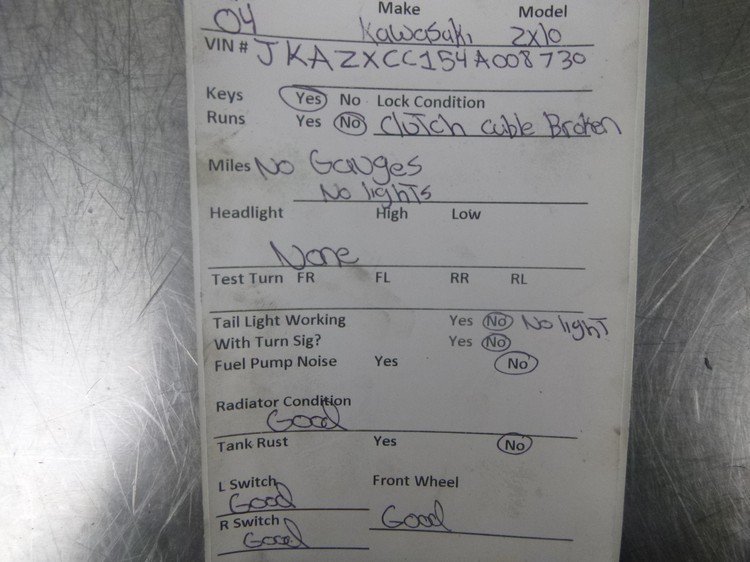 Make Model
04 Kawasaki ZX10
VIN # JKAZXCC154A008730
Keys Yes No Lock Condition
Runs Yes No Clutch cable Broken
Miles No Gauges
No lights
Headlight High Low
None
Test Turn FR FL RR RL
Tail Light Working Yes No No light
With Turn Sig? Yes No
Fuel Pump Noise Yes No
Radiator Condition
Good
Tank Rust Yes No
L Switch Front Wheel
Good Good
R Switch
Good